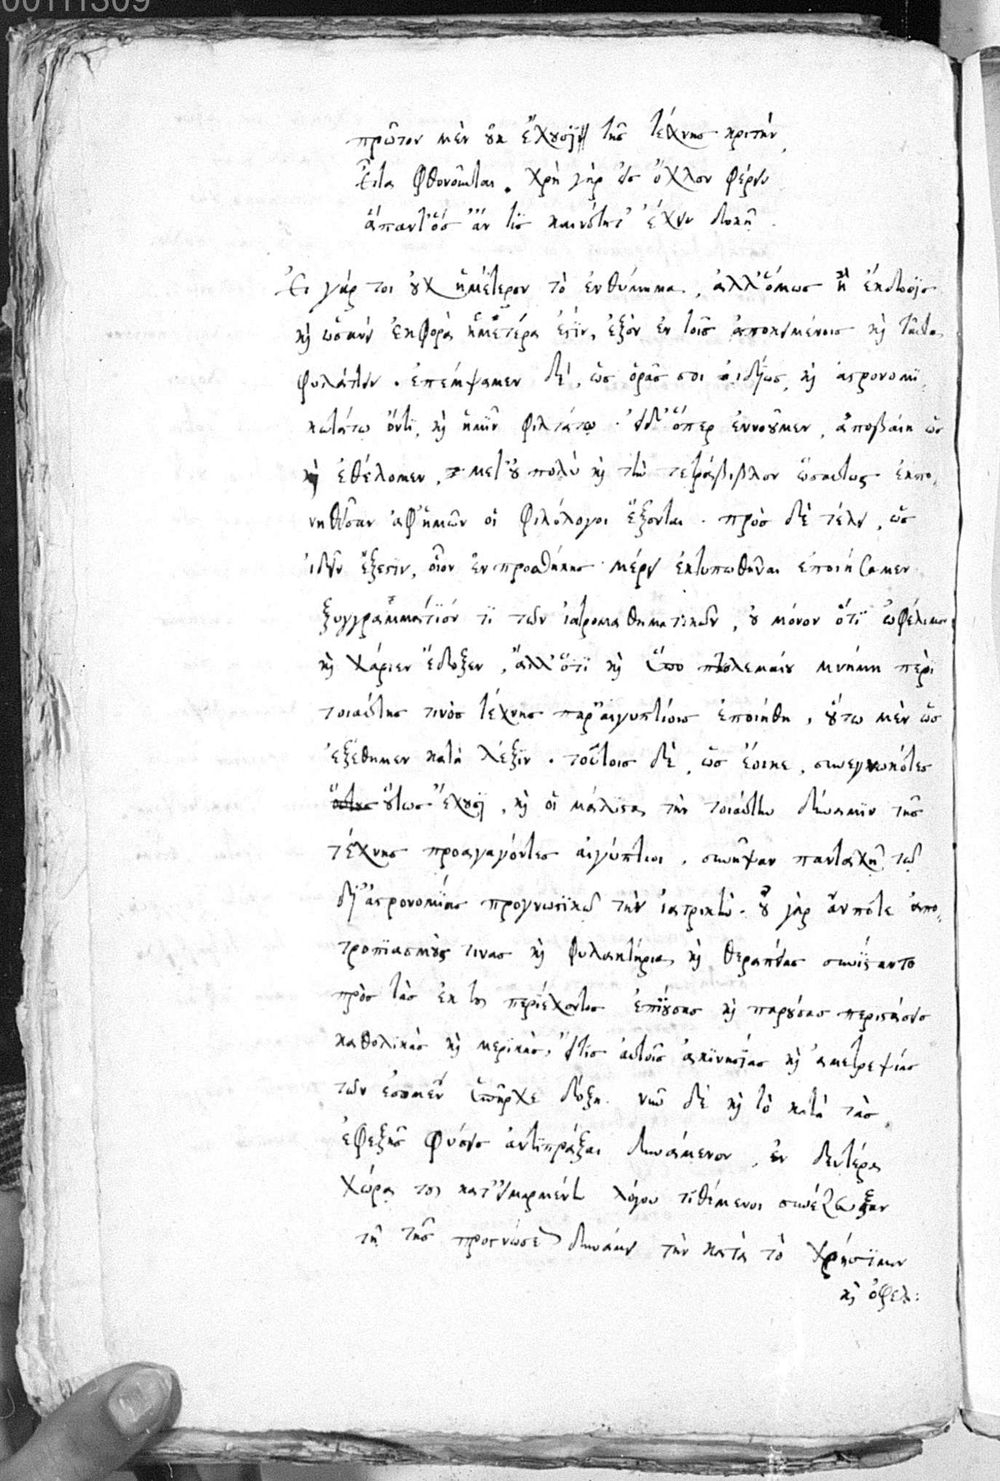 00111309
πρῶτον μὲν οὐκ ἔχουσι τῆς τέχνης κριτὴν,
Εἶτα φθονοῦνται. χρὴ γὰρ ὡς ὄχλον φέρειν
ἅπανθ' ὃς ἄν τις καινότητ' ἔχειν δοκῇ.
Εἰ γάρ τοι οὐχ ἡμέτερον τὸ ἐνθύμημα, ἀλλ' ὅμως ἡ ἔκδοσις
καὶ ὡσανεὶ ἐκφορὰ ἡμετέρα ἐστὶν, ἐξὸν ἐν τοῖς ἀποκειμένοις καὶ ταῦτα
φυλάττειν. ἐπέμψαμεν δέ, ὡς ὁρᾷς σοι ἀϊδίως, καὶ ἀστρονομι
κωτάτῳ ὄντι, καὶ ἡμῖν φιλτάτῳ. εἰ δ' ὅπερ ἐννοοῦμεν, ἀποβαίη ὡς
καὶ ἐθέλομεν, μετ' οὐ πολὺ καὶ τὴν τετράβιβλον ὡσαύτως ἐκπο
νηθεῖσαν ἀφ' ἡμῶν οἱ φιλόλογοι ἕξονται. πρὸς δὲ τέλει, ὡς
ἰδεῖν ἔξεστιν, οἷον ἐν προσθήκης μέρει ἐκτυπωθῆναι ἐποιήσαμεν
ξυγγραμμάτιόν τι τῶν ἰατρομαθηματικῶν, οὐ μόνον ὅτι ὠφέλιμον
καὶ χάριεν ἔδοξεν, ἀλλ' ὅτι καὶ ὑπὸ πτολεμαίου μνήμη περὶ
τοιαύτης τινὸς τέχνης παρ' αἰγυπτίοις ἐποιήθη, οὕτω μὲν ὡς
ἐξέθημεν κατὰ λέξιν. τούτοις δὲ, ὡς ἔοικε, συνεγνωκότες
οὕτως ἔχουσι, καὶ οἱ μάλιστα τὴν τοιαύτην δύναμιν τῆς
τέχνης προαγαγόντες αἰγύπτιοι, συνῆψαν πανταχῇ τῷ
δι' ἀστρονομίας προγνωστικῷ τὴν ἰατρικὴν. οὐ γὰρ ἄν ποτε ἀπο
τροπιασμοὺς τινας καὶ φυλακτήρια, καὶ θεραπείας συνίσταντο
πρὸς τὰς ἐκ τοῦ περιέχοντος ἐπιούσας καὶ παρούσας περιστάσεις
καθολικὰς καὶ μερικὰς, εἴ τις αὐτοῖς ἀκινησίας καὶ ἀμετρεψίας
τῶν ἐσομένων ὑπῆρχε δόξα. νῦν δὲ καὶ τὸ κατὰ τὰς
ἐφεξῆς φύσεις ἀντιπρᾶξαι δυνάμενον, ἐν δευτέρᾳ
χώρᾳ τοῦ καθ' εἱμαρμένην λόγου τιθέμενοι συνέζευξαν
τῇ τῆς προγνώσεως δυνάμει τὴν κατὰ τὸ χρήσιμον
καὶ ὀφελ: